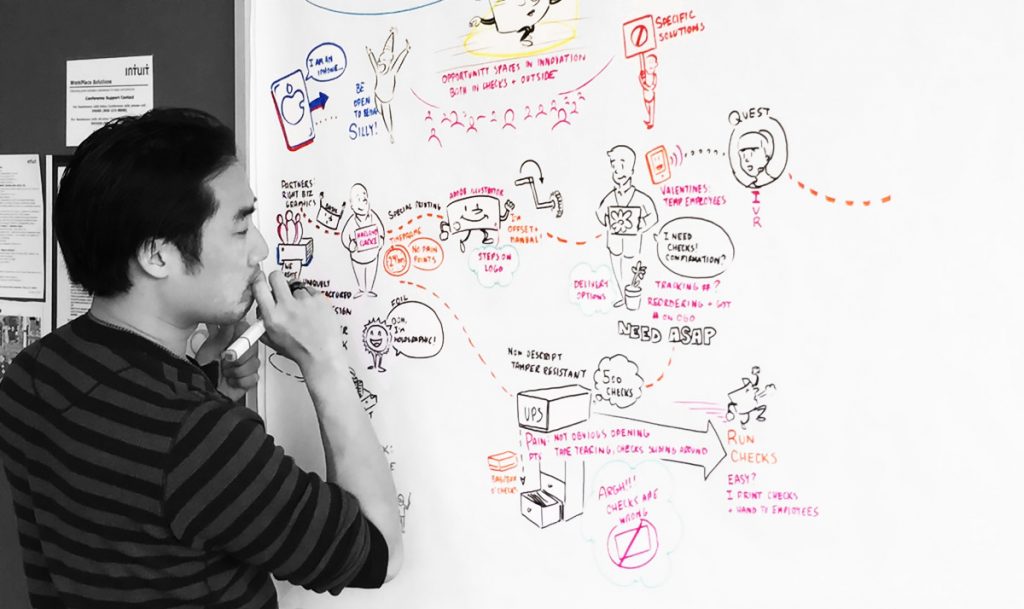 intuit
WorkPlace Solutions
Conference Support Contact
intuit
I AM AN
IPHONE...
BE
OPEN
TO BEING
SILLY!
OPPORTUNITY SPACES IN INNOVATION
BOTH IN CHECKS + OUTSIDE
SPECIFIC
SOLUTIONS
PARTNERS:
RIGHT BIZ
GRAPHICS
SPECIAL PRINTING
TIMEFRAME
24HR
NO PAIN
POINTS
STEPS ON
LOGO
I'M
OFFSET +
MANUAL!
DELIVERY
OPTIONS
VALENTINES:
TEMP EMPLOYEES
QUEST
IVR
I NEED
CHECKS!
CONFIRMATION?
TRACKING #?
REORDERING + GOT
# ON CBO
NEED ASAP
FOIL
OOH,
I'M
HOLOGRAPHIC!
NON DESCRIPT
TAMPER RESISTANT
500
CHECKS
UPS
PAIN
PTS
: NOT OBVIOUS OPENING
TAPE TEARING, CHECKS SLIDING AROUND
RUN
CHECKS
EASY?
I PRINT CHECKS
+ HAND TO EMPLOYEES
ARGH!!!
CHECKS ARE
WRONG